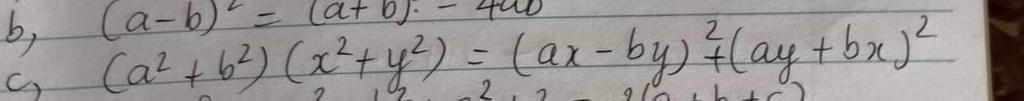 b, (a-b)² = (a+b)² - 4ab
c, (a² + b²) (x² + y²) = (ax - by)² + (ay + bx)²